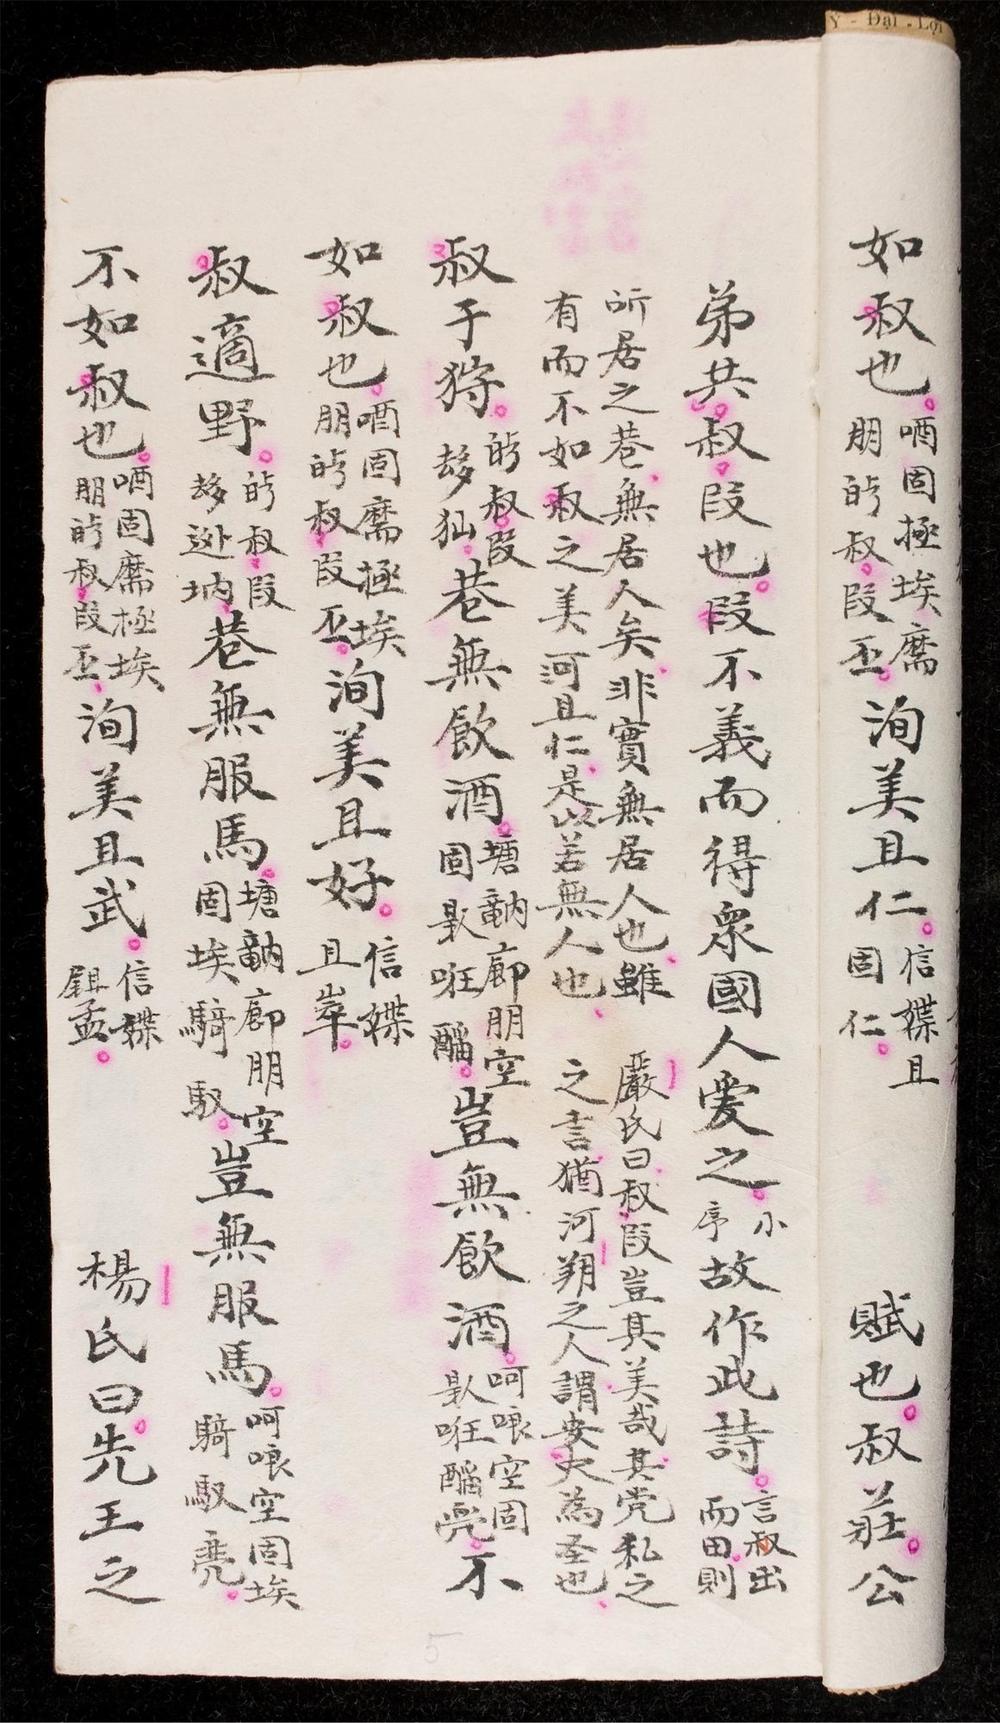 Y - Đại - Lợi
如叔也唒固極埃𢋠朋於叔段丕洵美且仁信媟且固仁賦也叔莊公
弟共叔段也段不義而得衆國人爱之小序故作此詩言叔出而田則
所居之巷無居人矣非實無居人也雖嚴氏曰叔段豈其美哉其党私之
有而不如叔之美河且仁是以若無人也之言猶河朔之人謂安史為圣也
叔于狩於叔段𠫾狝巷無飲酒塘𥪝廊朋空固㗂醠豈無飲酒呵哴空固㗂醠𠅳不
如叔也唒固𢋠極埃朋於叔段丕洵美且好信媟且崒
叔適野於叔段𠫾𨖅坳巷無服馬塘𥪝廊朋空固埃騎馭豈無服馬呵哴空固埃騎馭𠅳
不如叔也唒固𢋠極埃朋於叔段丕洵美且武信媟孟楊氏曰先王之
5